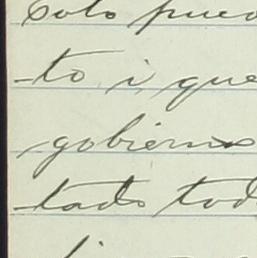 Esto pued
to i que
gobierno
tado tod